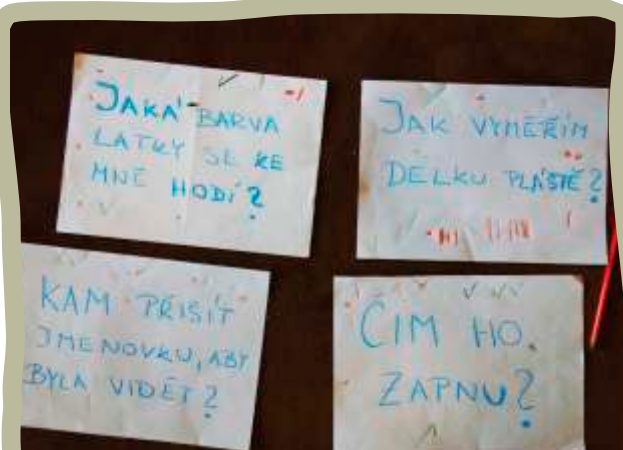 JAKÁ BARVA
LÁTKY SE KE
MNĚ HODÍ?
JAK VYMĚŘÍM
DÉLKU PLÁŠTĚ?
KAM PŘIŠÍT
JMENOVKU, ABY
BYLA VIDĚT?
ČÍM HO
ZAPNU?